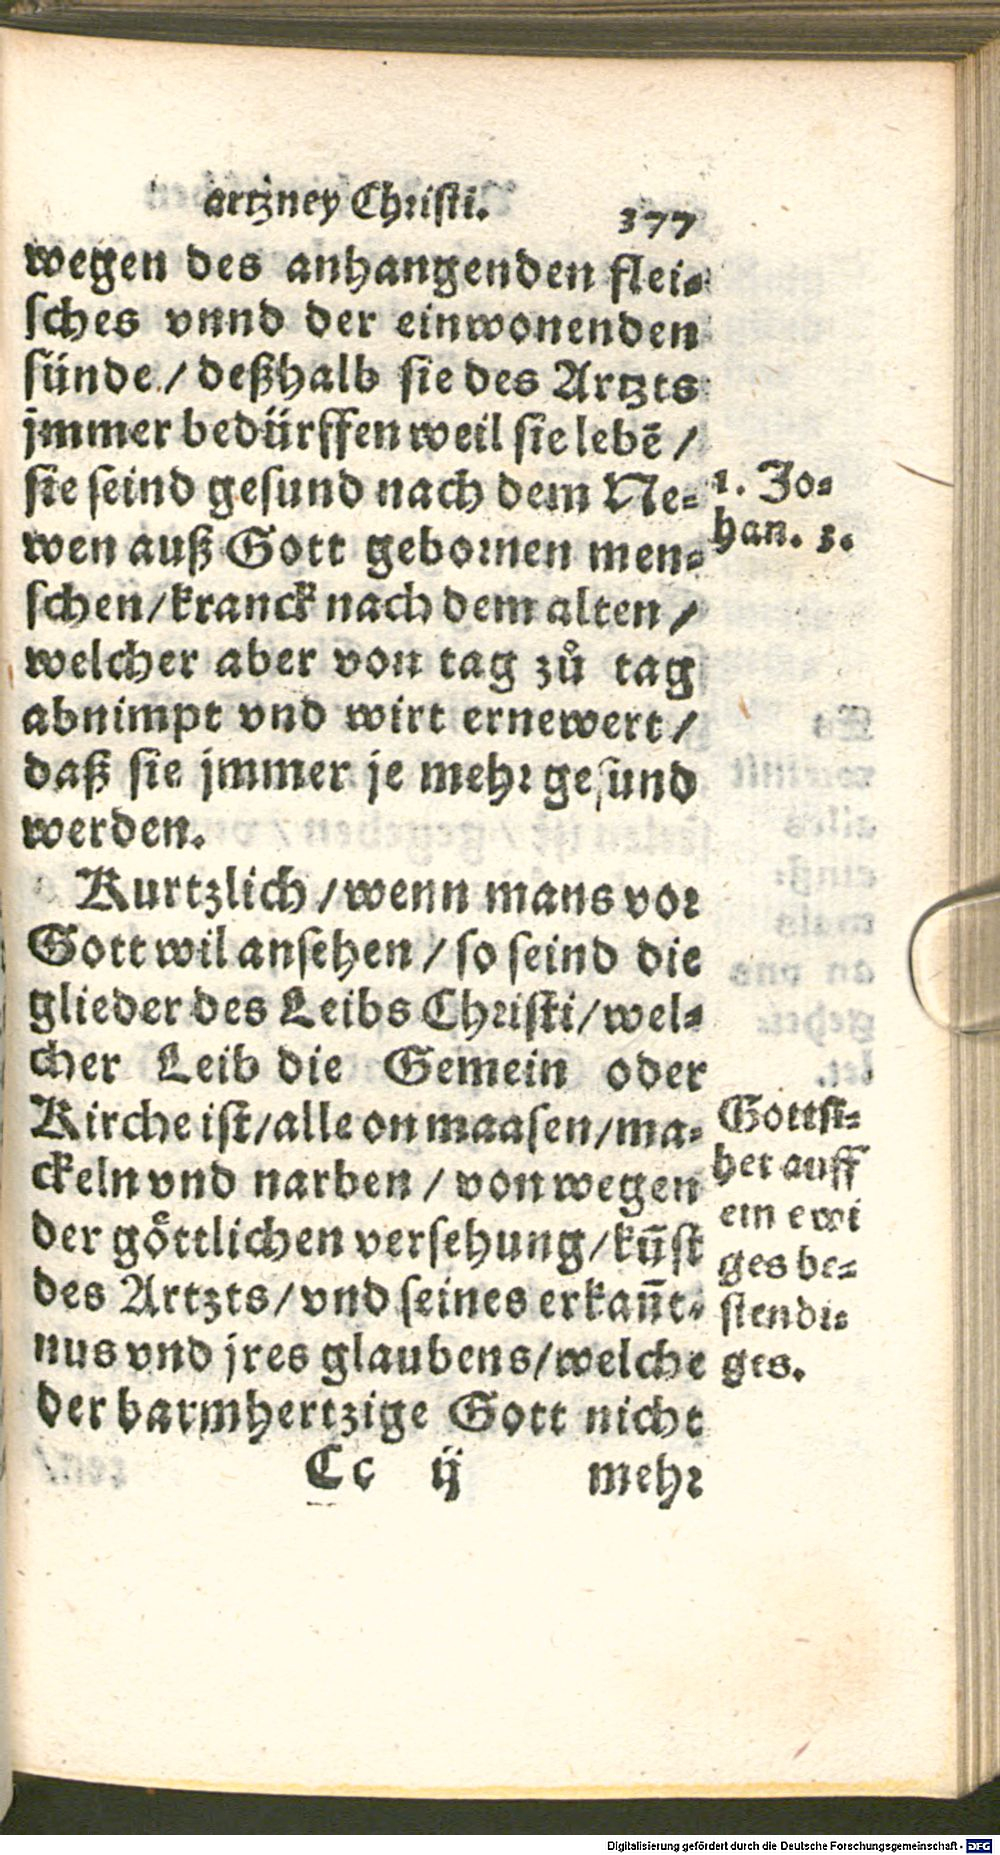 artzney Christi. 377
wegen des anhangenden flei⸗
sches vnnd der einwonenden
sünde / deßhalb sie des Artzts
jmmer bedürffen weil sie lebē /
sie seind gesund nach dem Ne⸗
wen auß Gott gebornen men⸗
schen/kranck nach dem alten /
welcher aber von tag zů tag
abnimpt vnd wirt ernewert /
daß sie jmmer je mehr gesund
werden.
1. Jo⸗
han. 3.
Kurtzlich / wenn mans vor
Gott wil ansehen / so seind die
glieder des Leibs Christi/wel⸗
cher Leib die Gemein oder
Kirche ist/alle on maasen/ma⸗
ckeln vnd narben / von wegen
der goͤttlichen versehung/kūst
des Artzts/vnd seines erkañt⸗
nus vnd jres glaubens/welche
der barmhertzige Gott nicht
Gott si⸗
het auff
ein ewi
ges be⸗
stendi⸗
ges.
Cc ij mehr
Digitalisierung gefördert durch die Deutsche Forschungsgemeinschaft - DFG